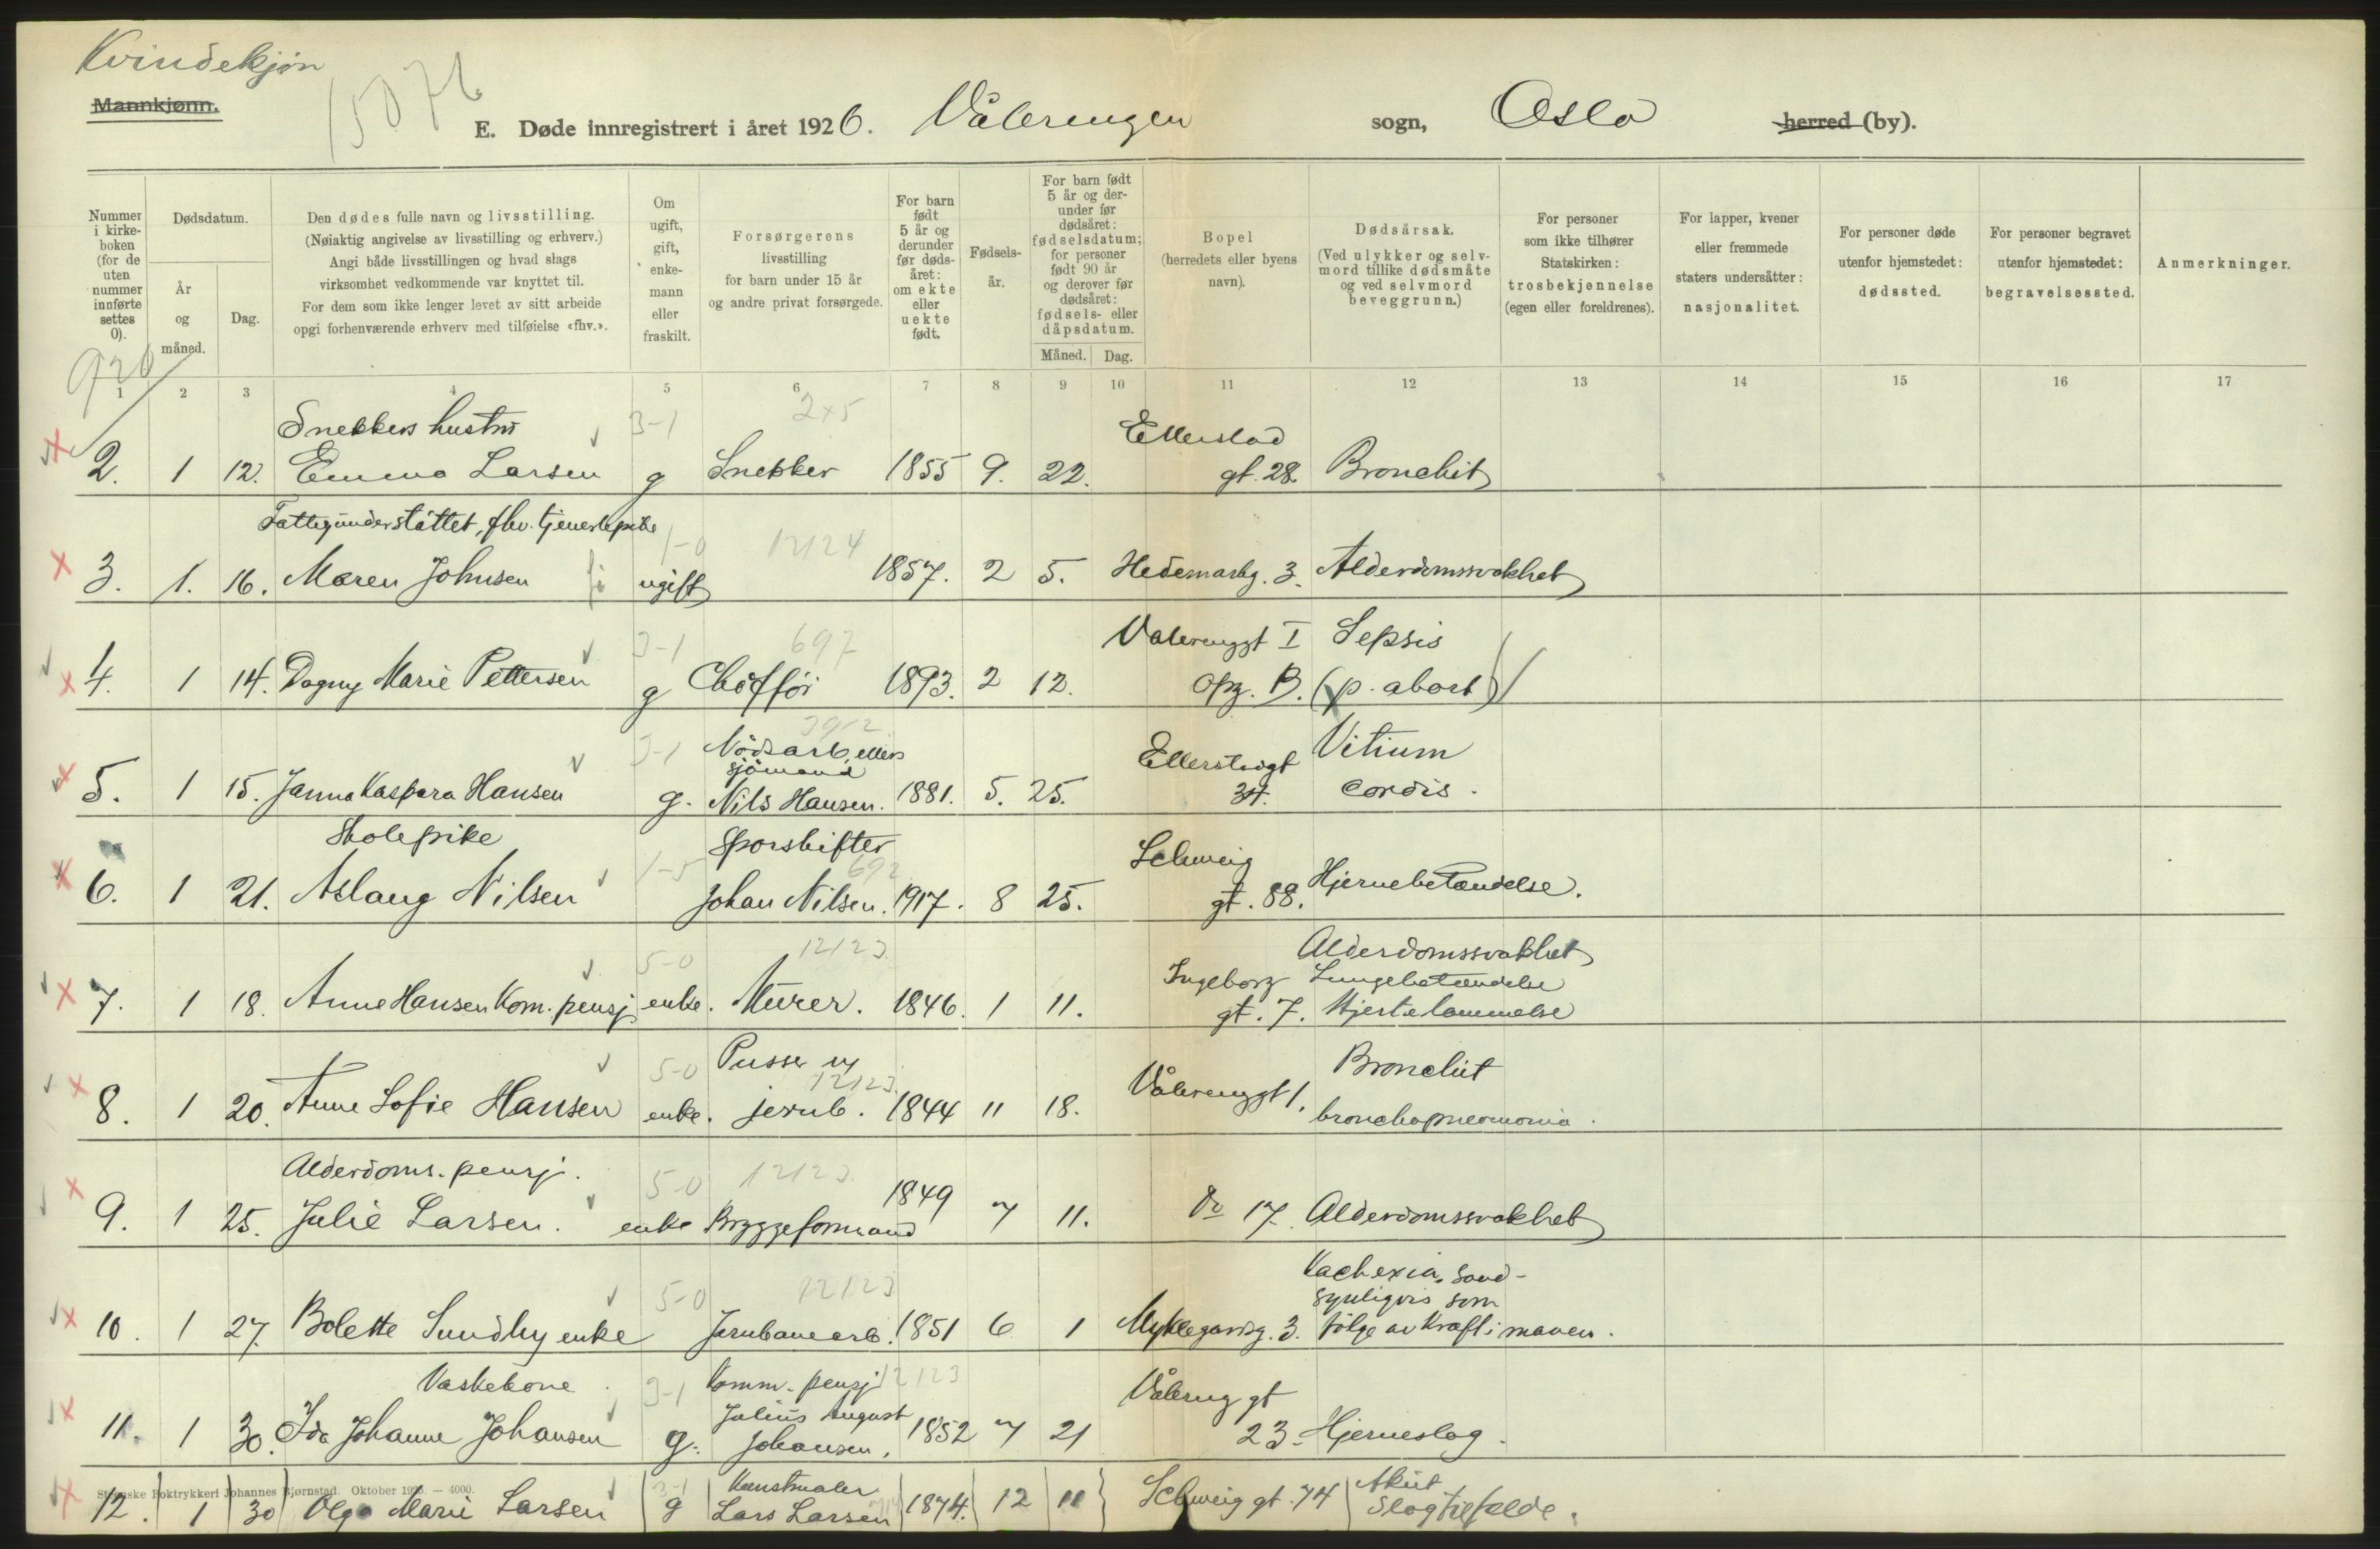 Kvindekjøn
Mannkjønn.
15076
E. Døde innregistrert i året 1926. Vålerengen sogn, Oslo herred (by).
Nummer i kirkeboken (for de uten nummer innførte settes 0).
Dødsdatum.
År og måned.
Dag.
Den dødes fulle navn og livsstilling.
(Nøiaktig angivelse av livsstilling og erhverv.)
Angi både livsstillingen og hvad slags
virksomhet vedkommende var knyttet til.
For dem som ikke lenger levet av sitt arbeide
opgi forhenværende erhverv med tilføielse «fhv.».
Om ugift, gift, enkemann eller fraskilt.
Forsørgerens
livsstilling
for barn under 15 år
og andre privat forsørgede.
For barn født 5 år og derunder før dødsåret: om ekte eller uekte født.
Fødselsår.
For barn født 5 år og derunder før dødsåret: fødselsdatum; for personer født 90 år og derover før dødsåret: fødsels- eller dåpsdatum.
Måned. Dag.
Bopel
(herredets eller byens
navn).
Dødsårsak.
(Ved ulykker og selvmord tillike dødsmåte og ved selvmord beveggrunn.)
For personer
som ikke tilhører
Statskirken:
trosbekjennelse
(egen eller foreldrenes).
For lapper, kvener
eller fremmede
staters undersåtter:
nasjonalitet.
For personer døde
utenfor hjemstedet:
dødssted.
For personer begravet
utenfor hjemstedet:
begravelsessted.
Anmerkninger.
926
1 2 3 4 5 6 7 8 9 10 11 12 13 14 15 16 17
Snekkers hustru 3-1 2x5 Ellerstad
2. 1 12. Emma Larsen g Snekker 1855 9. 22. gt. 28. Bronchit
Fattigunderstøttet, fhv. tjenestepike 1-0 12124
3. 1. 16. Maren Johnsen ugift 1857. 2 5. Hedemarkg. 3. Alderdomssvakhet
3-1 697 Valerenggt I Sepsis
4. 1 14. Dagny Marie Pettersen g Chófför 1893. 2 12. opg. B. (p. abort)
3-1 Nødsarb. ellers sjömand Ellerstadgt Vitium
5. 1 15. Janna Kaspara Hansen g. Nils Hansen. 1881. 5. 25. cordis.
Skolepike 1-5 Sporskifter 692 Schweig
6. 1 21. Aslaug Nilsen Johan Nilsen. 1917. 8 25. gt. 88. Hjernebetændelse.
5-0 12123 Alderdomssvakhet
Ingeborg Lungebetændelse
7. 1 18. Anne Hansen Kom. pensj. enke. Murer. 1846. 1 11. gt. 7. Hjertelammelse
5-0 Pusser v/ 12123 Bronchit
8. 1 20. Anne Sofie Hansen enke. jernb. 1844 11 18. Vålerenggt 1. bronchopneomonia.
Alderdoms. pensj. 5-0 12123
9. 1 25. Julie Larsen. enke Bryggeformand 1849 7 11. Do 17. Alderdomssvakhet
5-0 12123 Kachexia, sand-
synligvis som
10. 1 27. Bolette Sundby enke Jernbanearb. 1851 6 1 Myklegardsg. 3. følge av Kræft i maven.
Vaskekone 3-1 Komm. pensj. 12123 Vålereng gt
11. 1 30. Ida Johanne Johansen g. Julius August Johansen. 1852 7 21 23. Hjerneslag.
Steenske Boktrykkeri Johannes Bjørnstad. Oktober 1925. — 4000.
3-1 Kunstmaler Akut
12. 1 30 Olga Marie Larsen g Lars Larsen 1874. 12 11 Schweig gt. 74 Slagtilfælde.